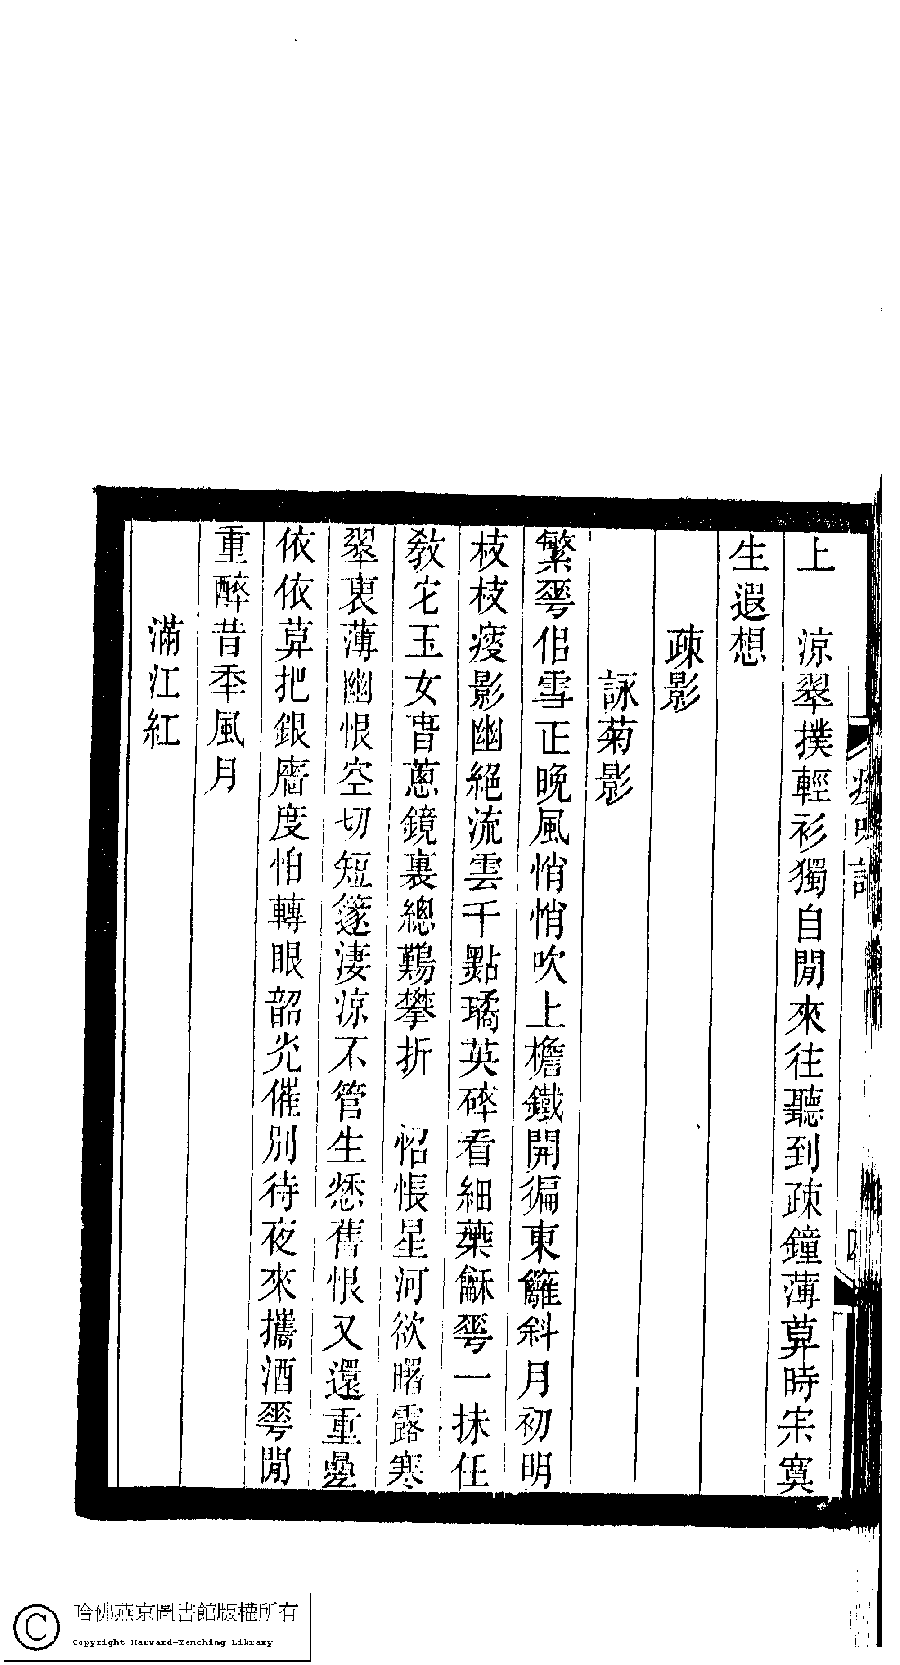 上　涼翠撲輕衫獨自閒來往聽到疎鐘薄莫時宋寞
生遐想
疎影
詠菊影
繁蕚佀雪正晚風悄悄吹上檐鐵開徧東籬斜月初明
枝枝瘦影幽絕流雲千點璚英碎看細藥龢蕚一抹任
敎它玉女曺蔥鏡裏總難攀折　怊悵星河欲曙露寒
翠裛薄幽恨空切短籩淒涼不管生愁舊恨又還重疊
依依莫把銀屠度怕轉眼韶光催別待夜來攜酒蕚閒
重醉昔秊風月
滿江紅
哈佛燕京圖書館版權所有
Copyright Harvard-Yenching Library